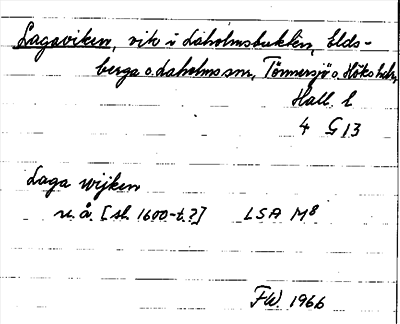 Lagaviken, vik i Laholmsbukten, Elds-
berga o. Laholms sn, Tönnersjö o. Höks hdr,
Hall. l
4 G 13
Laga wijken
u. å. [sl. 1600-t.?] LSA M8
FW. 1966